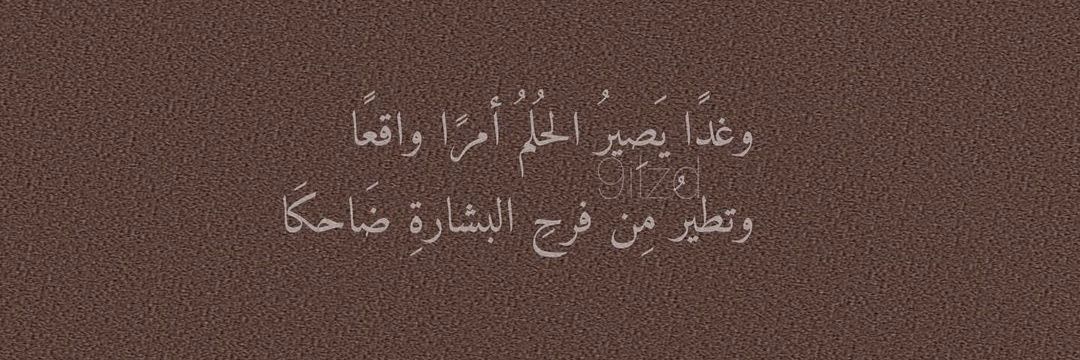 وغدًا يَصِيرُ الحُلُمُ أمرًا واقعًا
9iizd
وتطيرُ مِن فرحِ البشارةِ ضَاحكَا